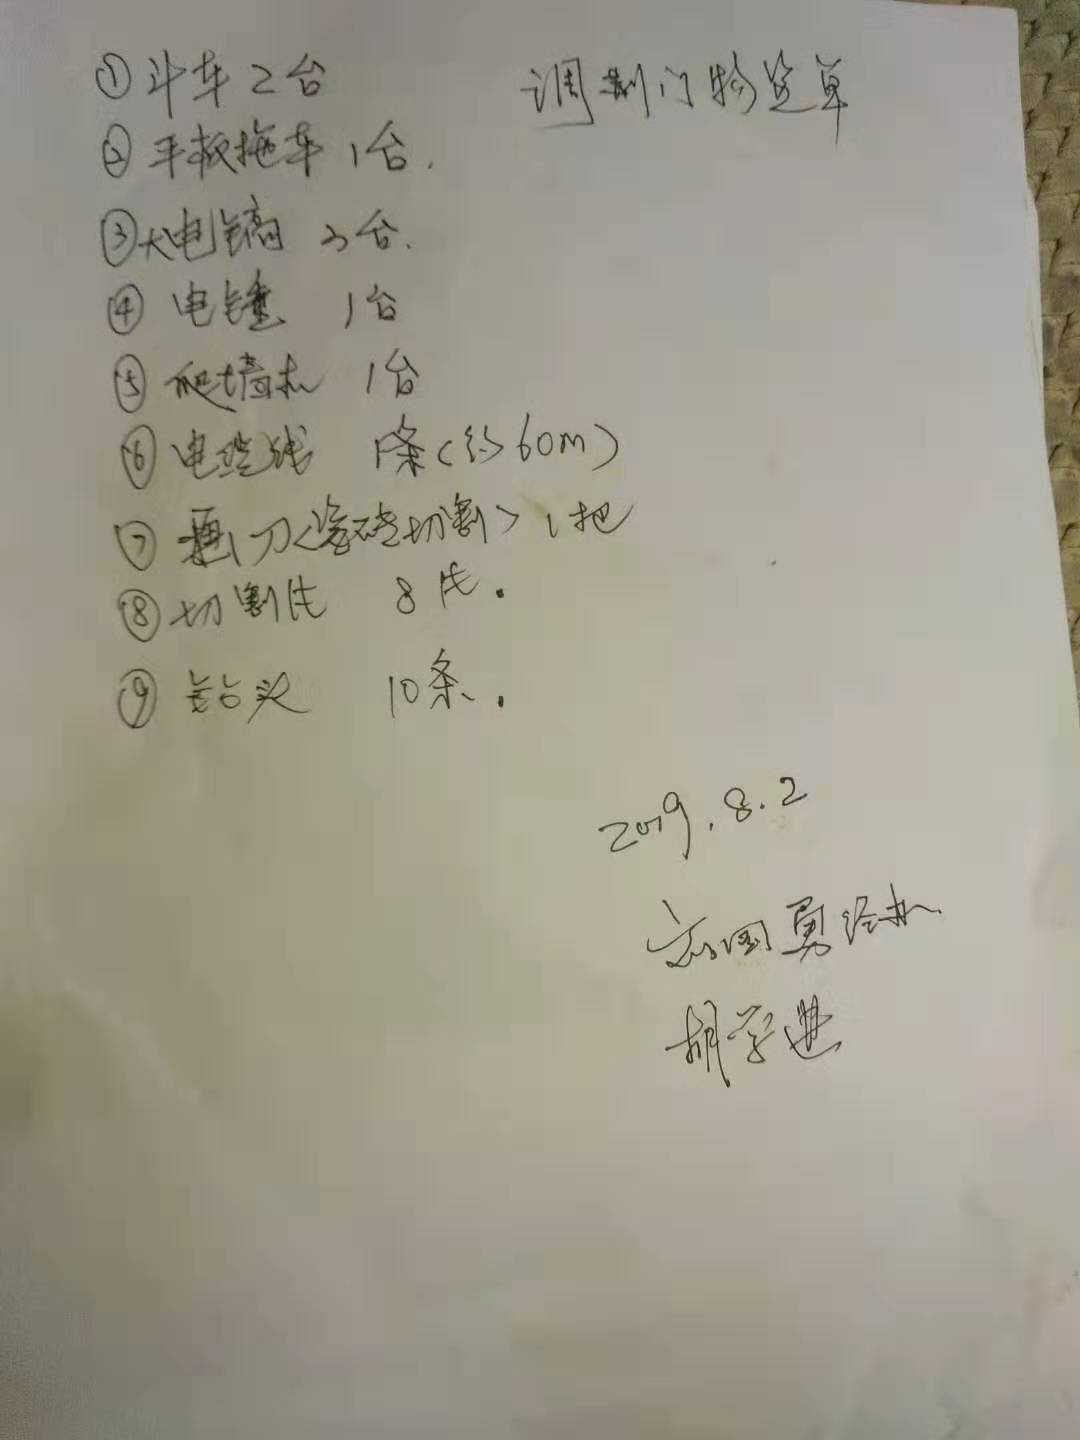 调制门物资单
①斗车2台
②平板拖车1台.
③大电镐3台.
④电锤 1台
⑤爬墙机 1台
⑥电缆线 1条(约60m)
⑦ 刀<瓷砖切割>1把
⑧切割片 8片.
⑨钻头 10条.
2019.8.2
国勇经机
胡学进